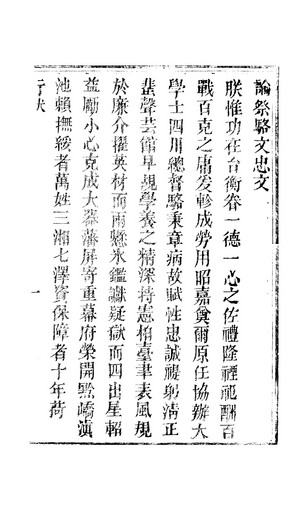 諭祭駱文忠文
朕惟功在台衡眷一德一心之佐禮隆禋祀酬百
戰百克之庸爰軫成勞用昭嘉奠爾原任協辦大
學士四川總督駱秉章病故賦性忠誠禔躬清正
蜚聲芸館早覘學養之精深持憲柏臺聿表風規
於廉介擢英材而兩懸氷鑑讞疑獄而四出星軺
益勵小心克成大器藩屏寄重幕府榮開黔嶠滇
池賴撫綏者萬姓三湘七澤資保障者十年荷
行狀
一